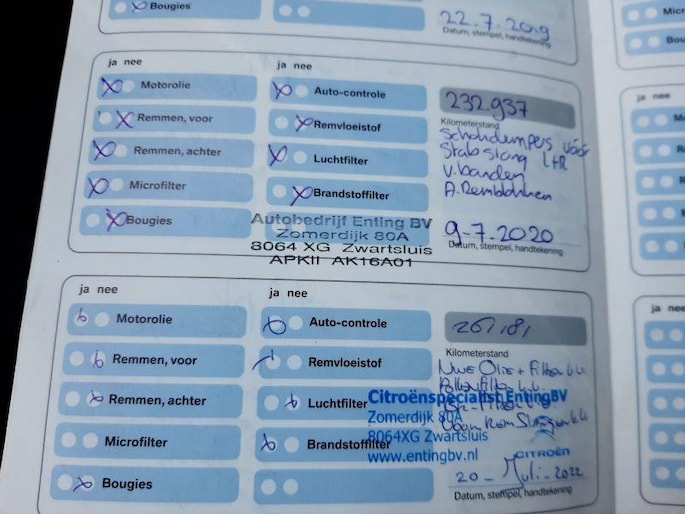 Bougies
22.7.2019
Datum, stempel, handtekening
Micr
Bou
ja nee
ja nee
Motorolie
Auto-controle
232.937
Kilometerstand
Remmen, voor
Remvloeistof
Schokdempers vóór
Stabstang L+R
Remmen, achter
Luchtfilter
V. banden
Microfilter
Brandstoffilter
A. Remblokken
Bougies
Autobedrijf Enting BV
Zomerdijk 80A
8064 XG Zwartsluis
APKII AK16A01
9-7-2020
Datum, stempel, handtekening
ja nee
Mo
Re
R
M
B
ja nee
ja nee
Motorolie
Auto-controle
261.181
Kilometerstand
Remmen, voor
Remvloeistof
Nwe Olie + Filter
Remmen, achter
Luchtfilter
Citroënspecialist EntingBV
Zomerdijk 80A
Microfilter
Brandstoffilter
8064XG Zwartsluis
CITROËN
www.entingbv.nl
Bougies
20 - Juli - 2022
Datum, stempel, handtekening
ja nee